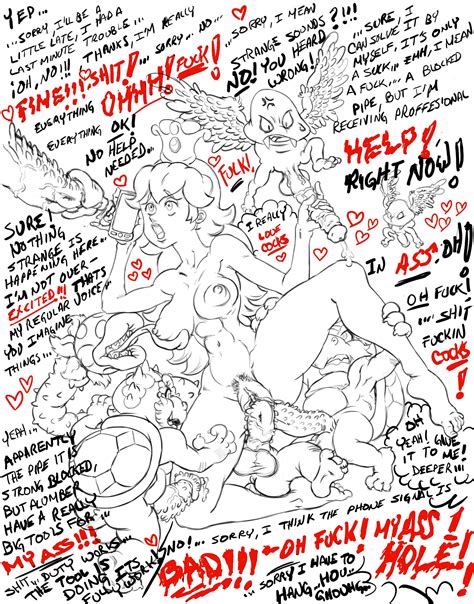 YEP...
...SORRY, I'LL BE A
LITTLE LATE, I HAD A
LAST MINUTE TROUBLE...
THANKS, I'M REALLY
...SORRY... NO...
!OH, NO!!!
FINE!!! SHIT!
OHHH! FUCK!
EVERYTHING
EVERYTHING OK!
NO HELP
NEEDED...
...SORRY, I MEAN
STRANGE SOUNDS?
NO! YOU HEARD
WRONG!
...SURE, I
CAN SOLVE IT BY
MYSELF, IT'S ONLY
A SUCK... EHH, I MEAN
A FUCK, A BLOCKED
PIPE BUT I'M
RECEIVING PROFFESIONAL
HELP!
RIGHT NOW!
FUCK!
I REALLY
LOVE
COCKS
SURE!
NOTHING
STRANGE IS
HAPPENING HERE...
I'M NOT OVER-
EXCITED!!! THATS
MY REGULAR VOICE
YOU IMAGINE
THINGS...
IN ASS OH!
OH FUCK!
...SHIT
FUCKIN
COCKS
YEAH...
APPARENTLY
THE PIPE IT IS
STRONG BLOCKED,
BUT A PLUMBER
HAVE A REALLY
BIG TOOLS FOR
MY ASS!!!
SHIT... DUTY WORKS!
THE TOOL IS
DOING ITS
FULL WORK!
OH
YEAH! GAVE
IT TO ME!
DEEPER...
NO!... SORRY, I THINK THE PHONE SIGNAL IS
BAD!!! OH FUCK! MY ASS
HOLE!
...SORRY I HAVE TO
HANG,